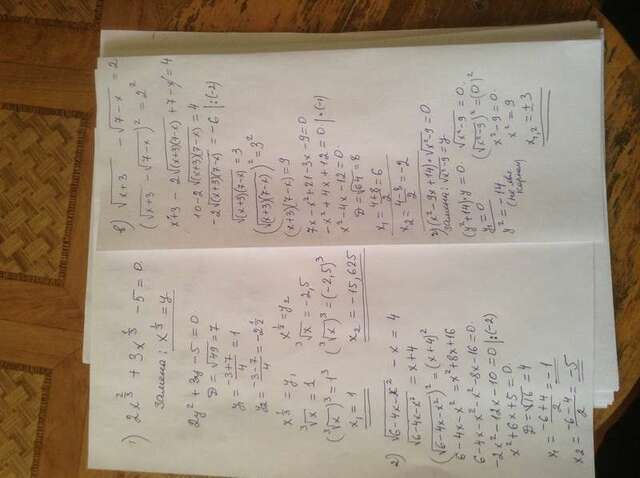 1) 2x^(2/3) + 3x^(1/3) - 5 = 0
замена: x^(1/3) = y
2y² + 3y - 5 = 0
D = √49 = 7
y₁ = (-3+7)/4 = 1
y₂ = (-3-7)/4 = -2 1/2
x^(1/3) = y₁ x^(1/3) = y₂
∛x = 1 ∛x = -2,5
(∛x)³ = 1³ (∛x)³ = (-2,5)³
x₁ = 1 x₂ = -15,625
2) √(6-4x-x²) - x = 4
√(6-4x-x²) = x+4
(√(6-4x-x²))² = (x+4)²
6-4x-x² = x²+8x+16
6-4x-x²-x²-8x-16=0
-2x²-12x-10=0 |:(-2)
x²+6x+5=0
D=√16=4
x₁ = (-6+4)/2 = -1
x₂ = (-6-4)/2 = -5
в) √(x+3) - √(7-x) = 2
(√(x+3) - √(7-x))² = 2²
x+3 - 2√((x+3)(7-x)) + 7-x = 4
10-2√((x+3)(7-x)) = 4
-2√((x+3)(7-x)) = -6 |:(-2)
√((x+3)(7-x)) = 3
(√((x+3)(7-x)))² = 3²
(x+3)(7-x) = 9
7x-x²+21-3x-9=0
-x²+4x+12=0 |·(-1)
x²-4x-12=0
D=√64=8
x₁ = (4+8)/2 = 6
x₂ = (4-8)/2 = -2
г) (x²-9x+14)·√(x²-9) = 0
замена: √(x²-9) = y
(y²+14)·y = 0
y₁ = 0
y² = -14
(не явл. корнем)
√(x²-9) = 0
(√(x²-9))² = (0)²
x²-9=0
x² = 9
x₁,₂ = ±3